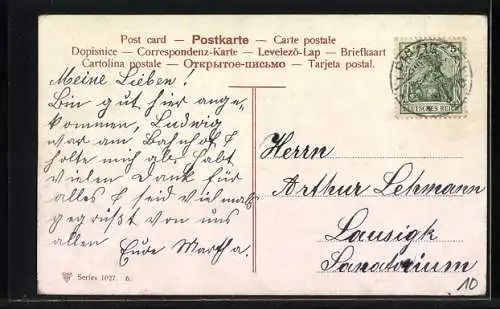 Post card — Postkarte — Carte postale
Dopisnice — Correspondenz-Karte — Levelező-Lap — Briefkaart
Cartolina postale — Открытое-письмо — Tarjeta postal.
Meine Lieben!
Bin gut hier ange-
kommen, Ludwig
war am Bahnhof &
holte mich ab. Habt
vielen Dank für
alles & seid vielmals
gegrüßt von uns
allen Eure Martha.
Herrn
Arthur Lehmann
Lausigk
Sanatorium
5
DEUTSCHES REICH
LEIPZIG
Series 1027. 6.
10